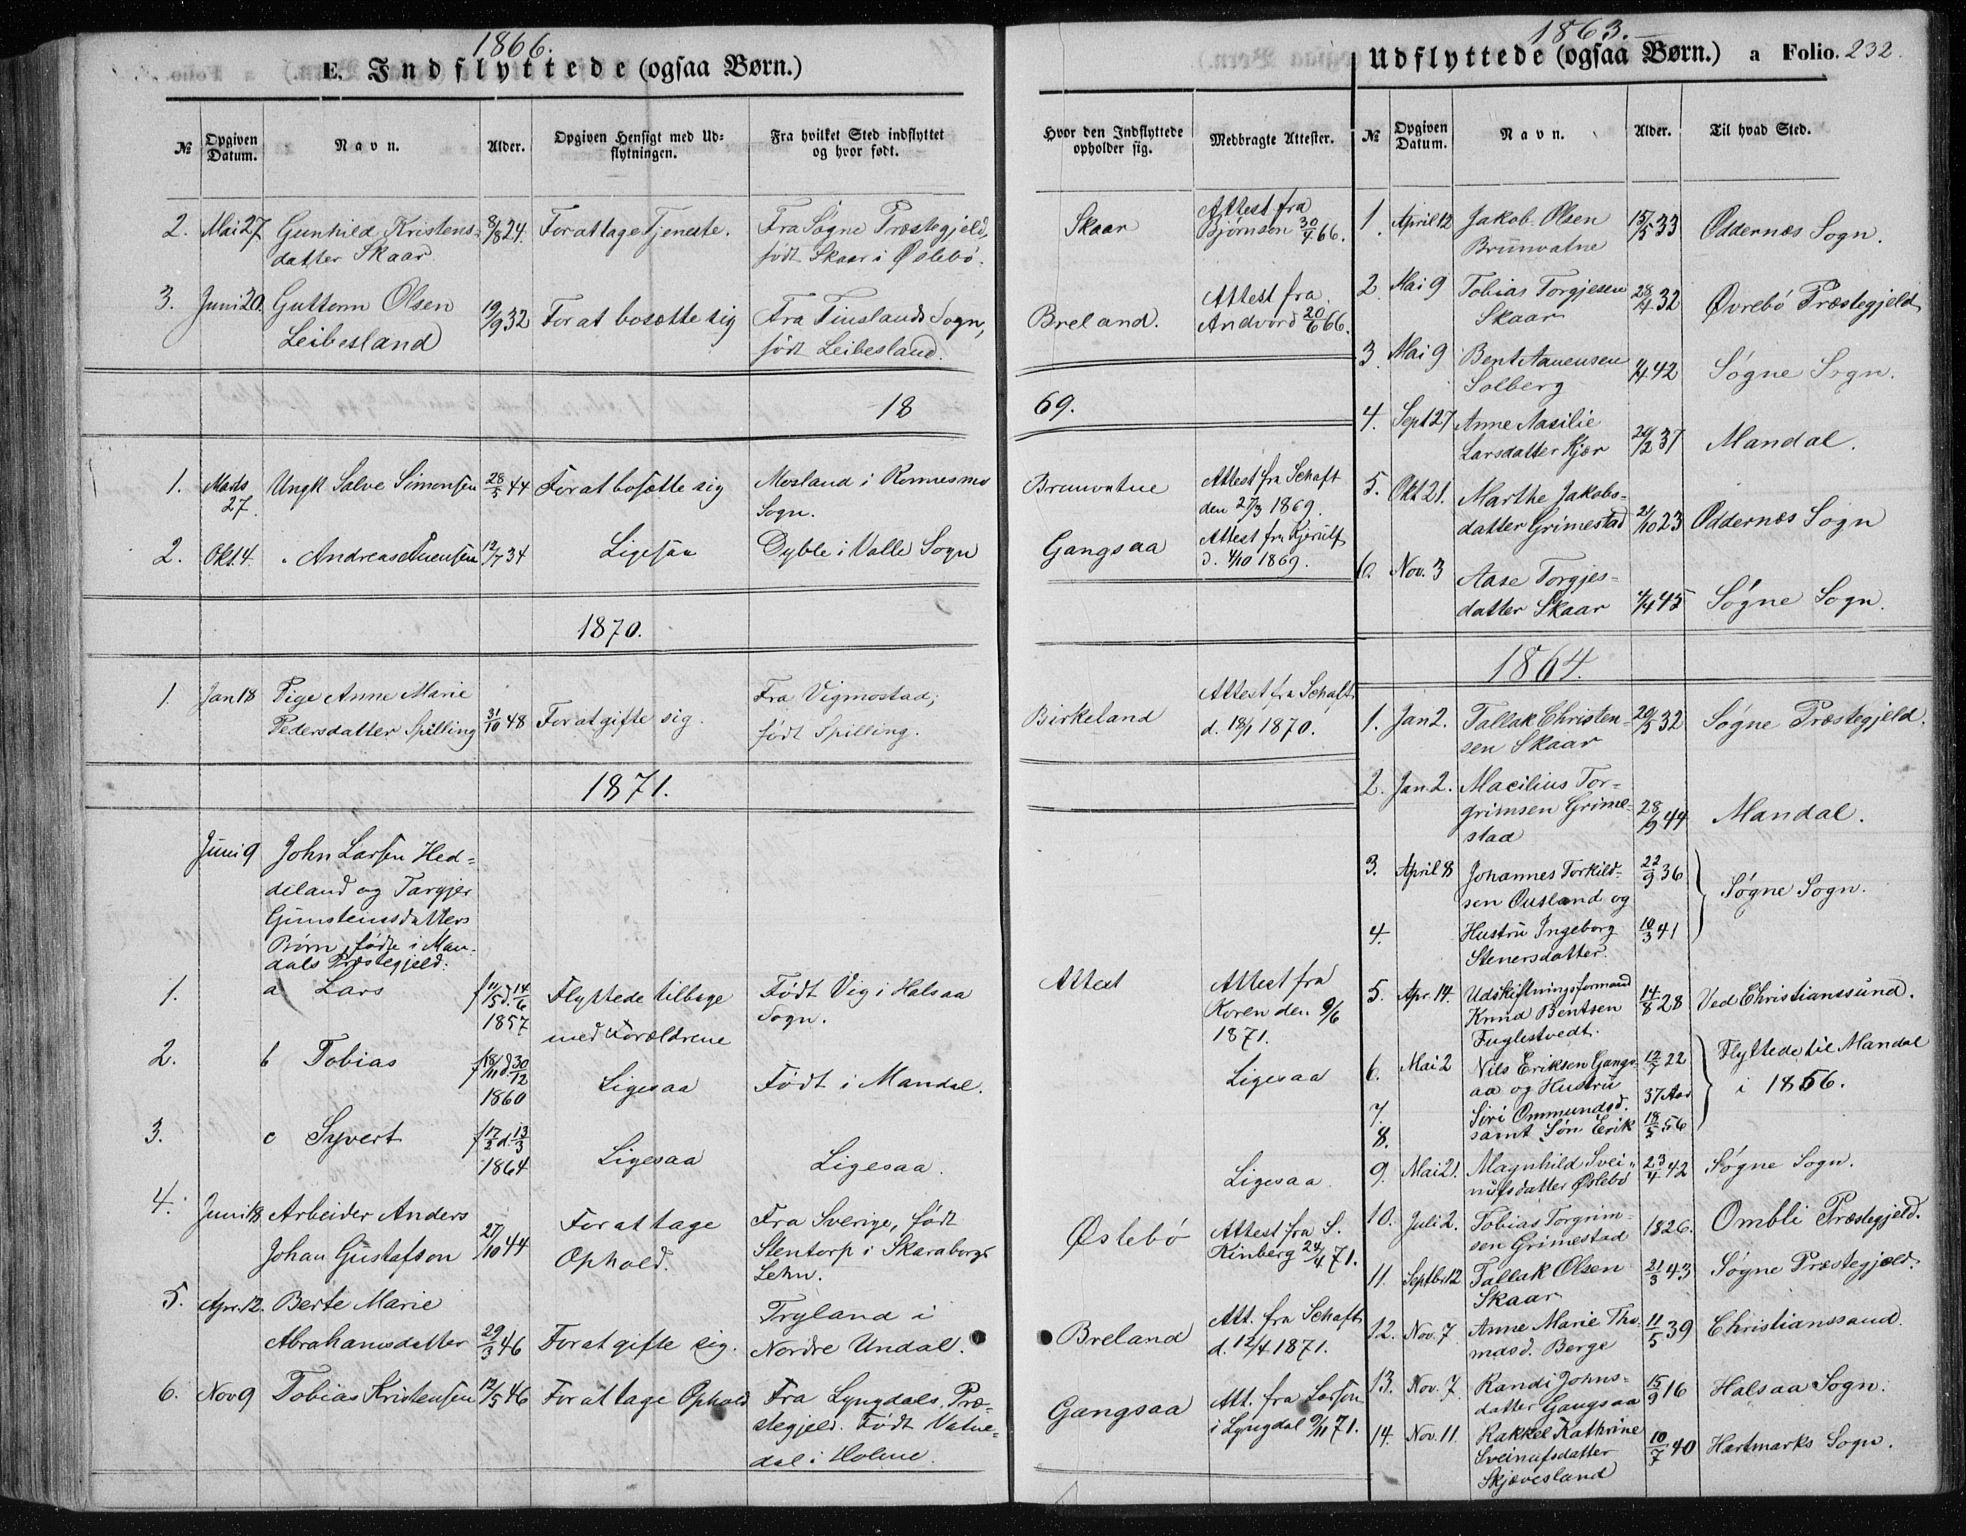 1866.
E. Indflyttede (ogsaa Børn.)
№ Opgiven Datum. Navn. Alder. Opgiven Hensigt med Udflytningen. Fra hvilket Sted indflyttet og hvor født.
2. Mai 27 Gunhild Kristens- 8/8 24. For at tage Tjeneste. Fra Søgne Præstegjeld,
datter Skaar født Skaar i Øslebø.
3. Juni 20. Guttorm Olsen 19/9 32 For at bosætte sig Fra Finslands Sogn,
Leibesland født Leibesland.
18
1. Marts Ungk Salve Simonsen 28/5 44 For at bosætte sig Mosland i
27. Sogn.
2. Okt. 4. Andreas 12/7 34 Ligesaa Dyble i Valle Sogn
1870.
1. Jan 18 Pige Anne Marie Fra Vigmostad,
Pedersdatter Spilling 31/10 48 For at gifte sig. født Spilling.
1871.
Juni 9 John Larsen Hed-
deland og Targjer
Gunsteinsdatters
Børn, fødte i Man-
dals Præstegjeld:
1. a Lars f 11/5 d. 14/6 Flyttede tilbage Født Vig i Halsaa
1857 med Forældrene Sogn.
2. b Tobias f 18/11 d. 30/12
1860 Ligesaa Født i Mandal.
3. c Syvert f 17/2 d. 13/3
1864 Ligesaa Ligesaa.
4. Juni 18 Arbeider Anders 27/10 44 For at tage Fra Sverige, født
Johan Gustafson Ophold. Stentorp i Skaraborgs
Lehn.
5. Apr. 12. Berte Marie Tryland i
Abrahamsdatter 29/3 46 For at gifte sig. Nordre Undal.
6. Nov 9 Tobias Kristensen 12/5 46 For at tage Ophold Fra Lyngdals Præ-
stegjeld. Født Vatne-
dal i Holme.
Hvor den Indflyttede opholder sig. Medbragte Attester.
Skaar Attest fra
Bjørnson 30/4 66.
Breland. Attest fra
Andvord 20/6 66.
69.
Brunvatne Attest fra Schaft
den 27/3 1869.
Gangsaa Attest fra Kjerulf
d. 4/10 1869.
Birkeland Attest fra Schaft
d. 18/1 1870.
Attest Attest fra
Koren den 9/6
1871.
Ligesaa
Ligesaa.
Øslebø Attest fra S.
Kinberg 24/4 71.
Breland Att. fra Schaft
d. 12/4 1871.
Gangsaa Att. fra Larsen
i Lyngdal 9/11 71.
1863.
Udflyttede (ogsaa Børn.) a Folio. 232.
№ Opgiven Datum. Navn. Alder. Til hvad Sted.
1. April 12 Jakob Olsen 15/5 33 Oddernæs Sogn.
Brunvatne
2 Mai 9 Tobias Torgjesen 28/7 32 Øvrebø Præstegjeld
Skaar
3 Mai 9 Bent Aanensen 42 Søgne Sogn.
Solberg
4. Sept 27 Anne
Larsdatter Kjær 37 Mandal.
5. Okt 21. Marthe Jakobs-
datter Grimestad 23 Oddernæs Sogn
6. Nov. 3 Aase Torgjes-
datter Skaar 45 Søgne Sogn.
1864.
1. Jan 2. Tallak Christen- 32 Søgne Præstegjeld.
sen Skaar
2. Jan. 2. Macilius Tor-
grimsen Grime- 28/9 44 Mandal.
stad
3. April 8 Johannes Torkild- 22/9 36 Søgne Sogn.
sen Ousland og
4. Hustru Ingeborg 10/3 41
Stenersdatter.
5. Apr. 14. Udskiftningsformand 14/8 28 Ved Christianssund.
Knud Bentsen
Fuglestvedt.
6. Mai 2 Nils Eriksen Gangs- 12/7 22 Flyttede til Mandal
aa og Hustru i 1856.
7. Siri Ommundsd. 37 Aar
8. samt Søn Erik 18/5 56
9. Mai 21. Magnhild Svei- 23/4 42 Søgne Sogn.
nufsdatter Øslebø
10. Juli 2. Tobias Torgrim- 1826. Ombli Præstegjeld.
sen Grimestad
11. Septbr 12 Tallak Olsen 21/3 43 Søgne Præstegjeld.
Skaar
12. Nov. 7 Anne Marie Tho- 11/5 39 Christianssand.
masd. Berge
13. Nov. 7. Randi Johns- 15/9 16 Halsaa Sogn.
datter Gangsaa
14. Nov. 11. Rakkel Kathrine 10/7 40 Hartmarks Sogn.
Sveinufsdatter
Skjævesland